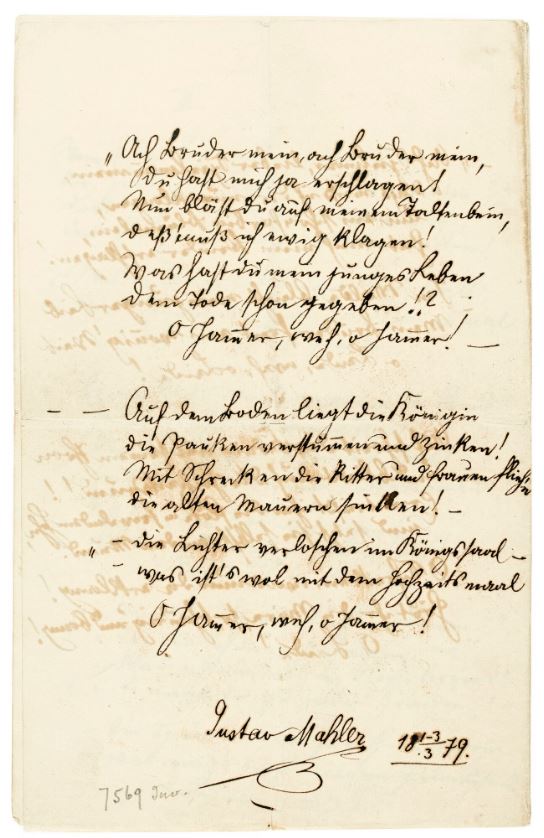 „Ach Bruder mein, ach Bruder mein,
du hast mich ja erschlagen!
Nun bläst du auf meinem Todtenbein,
deß muß ich ewig klagen!
Was hast du mein junges Leben
dem Tode schon gegeben!!?
O Jam̅er, weh, o Jam̅er! —
— — Auf dem Boden liegt die Königin
die Pauken verstummen und Zinken!
Mit Schrecken die Ritter und Frauen flieh'n
die alten Mauern sinken! —
„— die Lichter verloschen im Königssaal —
— was ist's wol mit dem Hochzeitsmaal
O Jam̅er, weh, o Jam̅er!
Gustav Mahler 18 1-3/3 79.
7569 Inv.